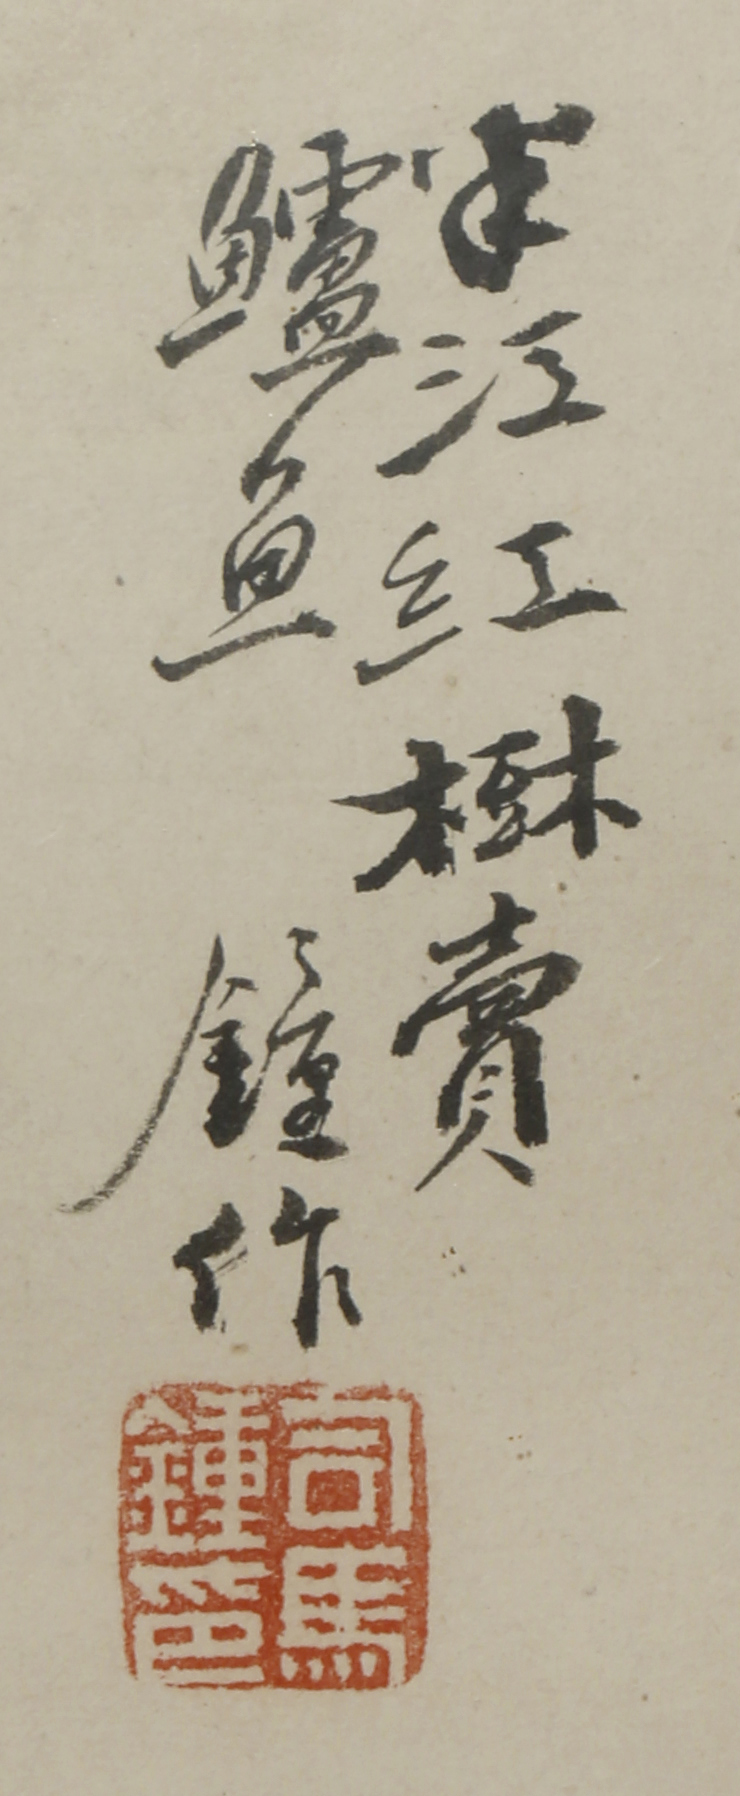 半江紅樹賣
鱸魚
鐘作
司馬
鍾印